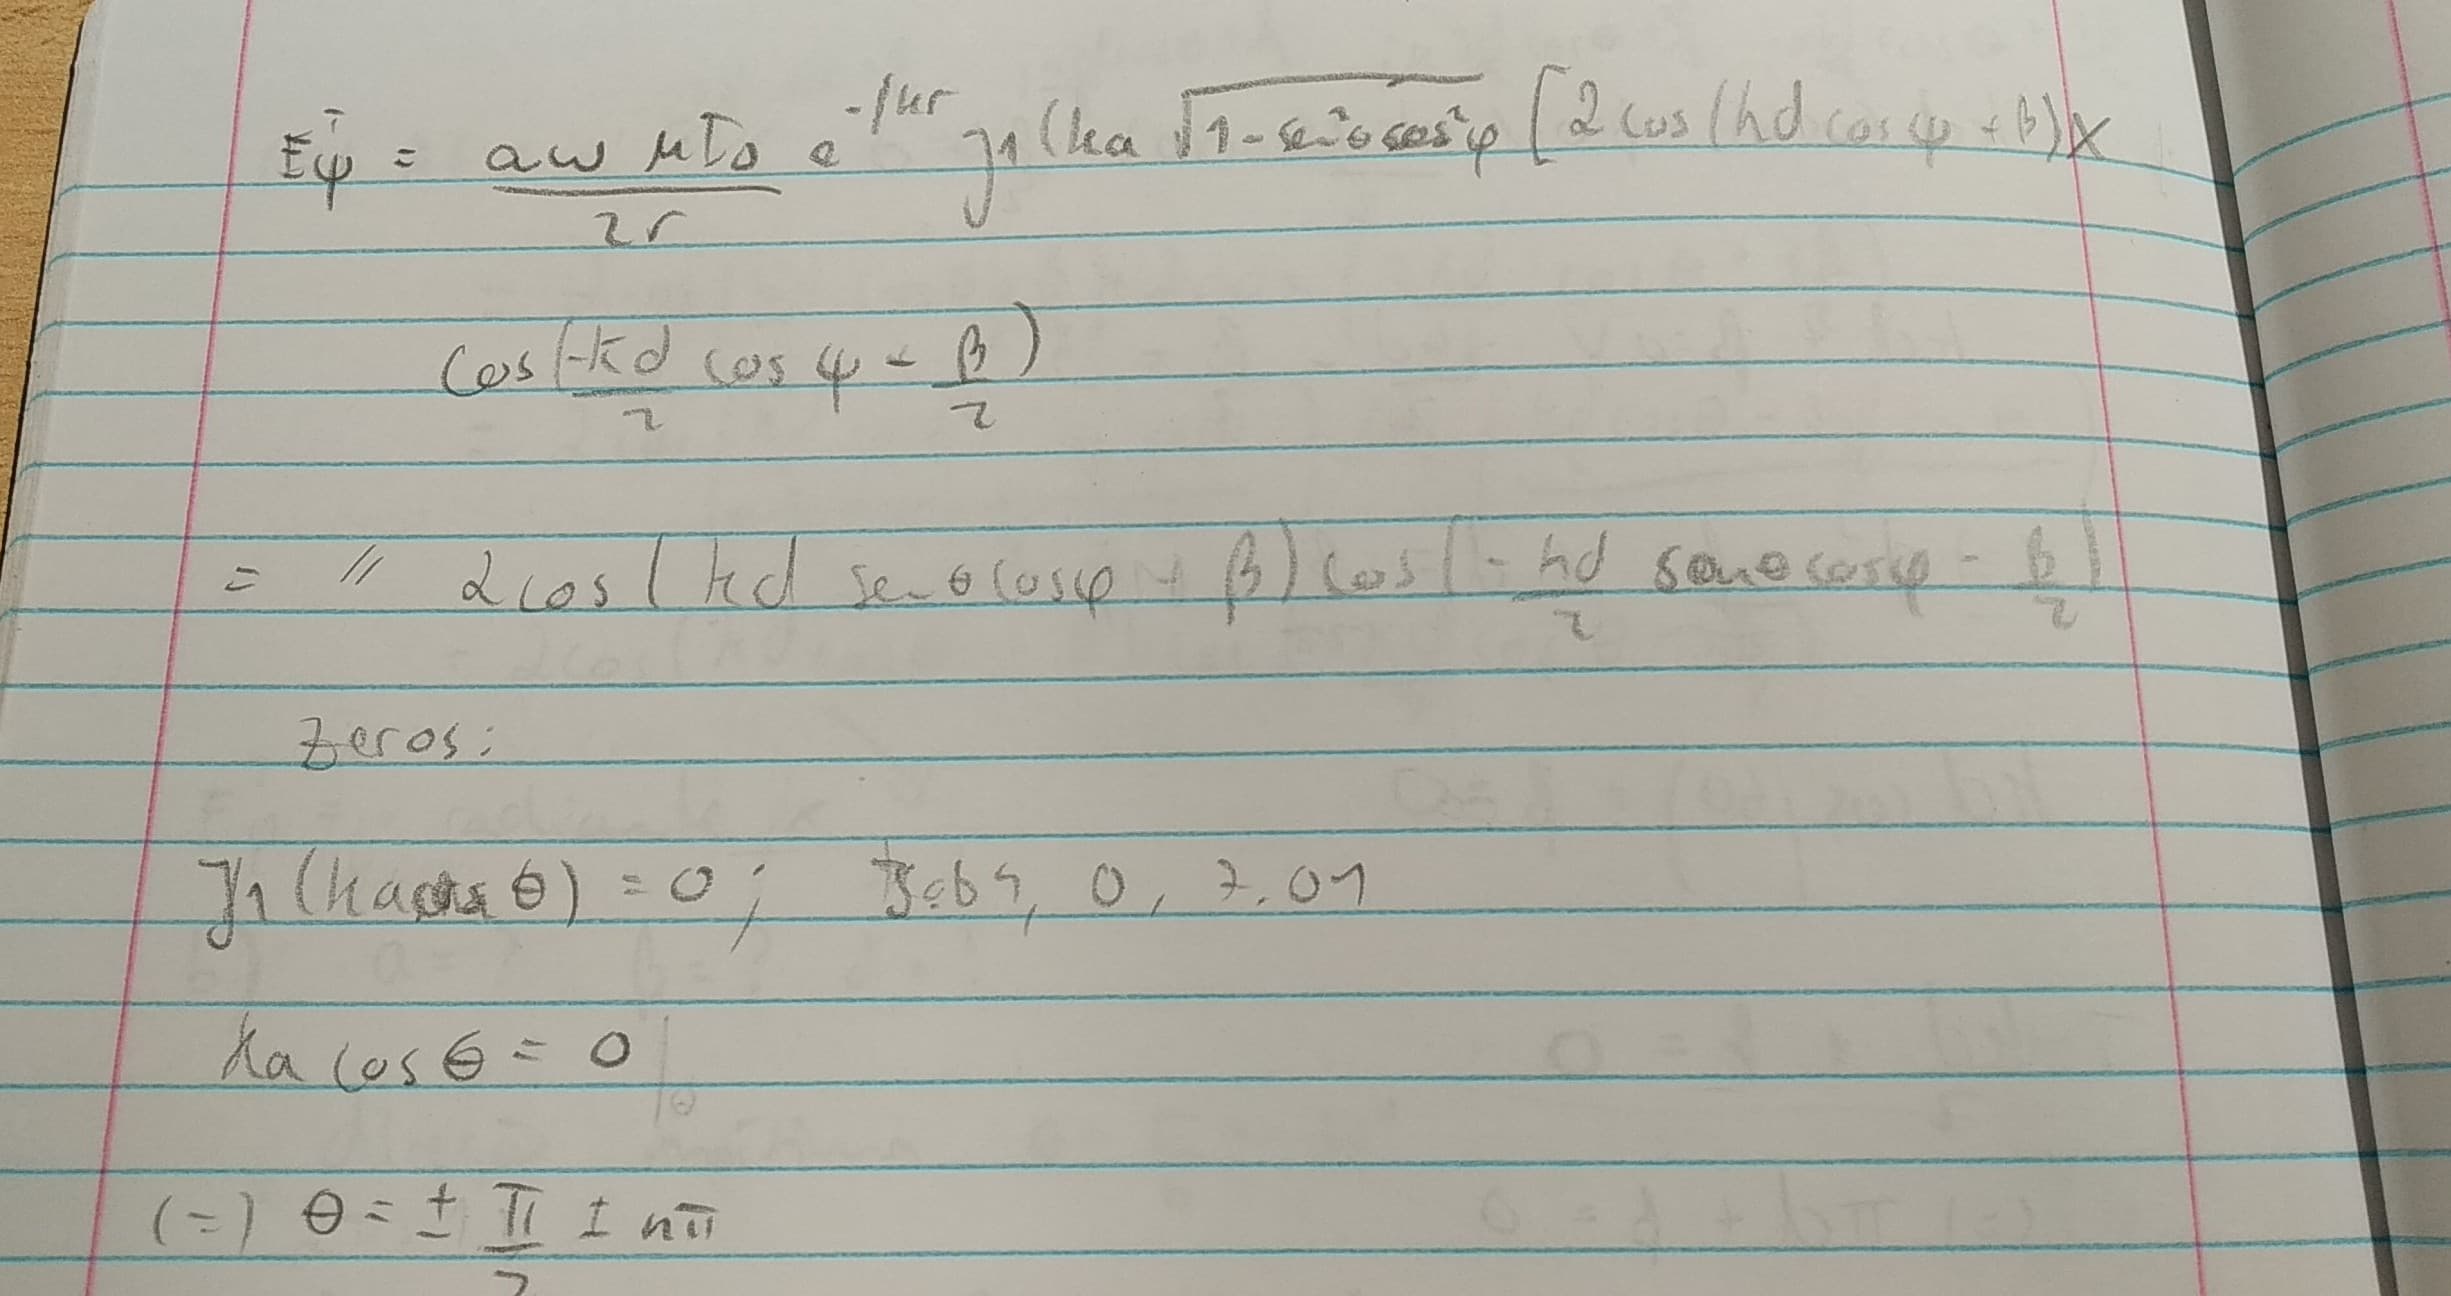 Eψ⁻ = aω μI₀ / 2r e^(-jkr) J1 (ka √(1 - sen²θ cos²φ) [2 cos (kd cos ψ + β) x
cos (-kd/2 cos ψ - β/2)
= // 2 cos ( kd sen θ cos φ + β) cos ( - kd/2 sen θ cos φ - β/2 )
Zeros:
J1 (ka cos θ) = 0 ; 0, 7.01
ka cos θ = 0
(=) θ = ± π/2 ± nπ